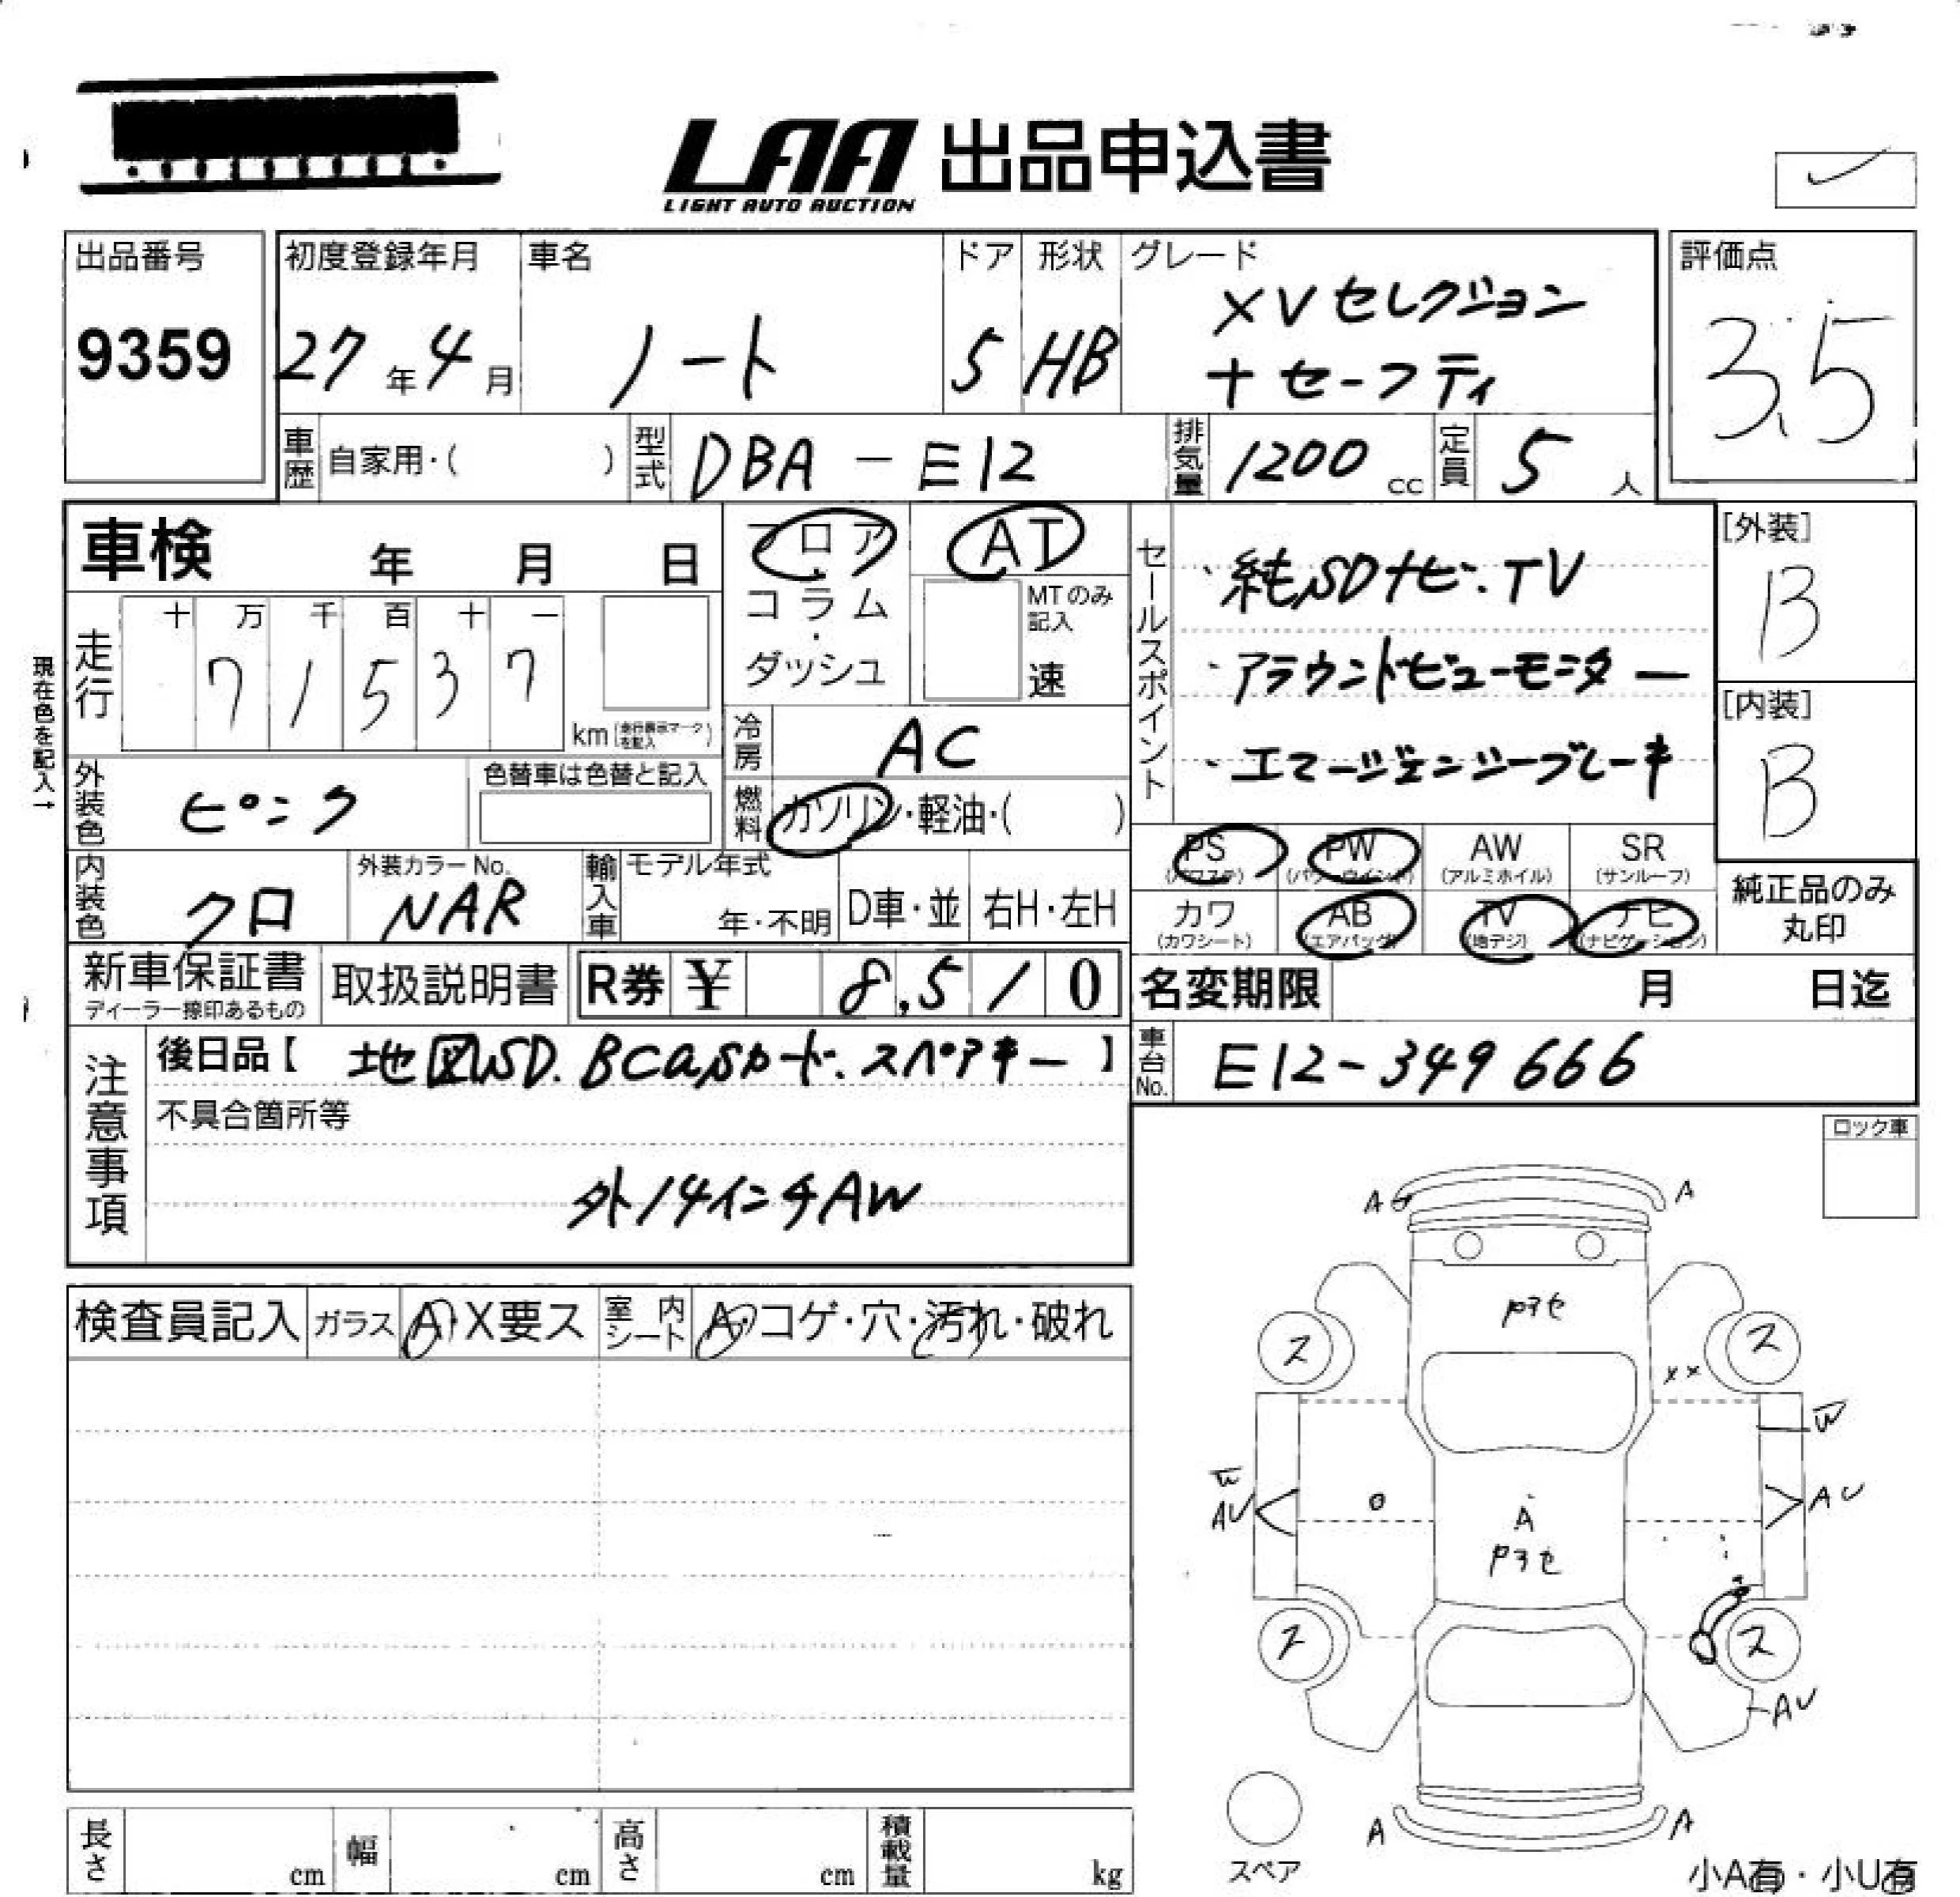 LAA 出品申込書
LIGHT AUTO AUCTION
出品番号
9359
初度登録年月
27年4月
車名
ノート
ドア
5
形状
HB
グレード
XVセレクション
+セーフティ
評価点
3.5
車歴 自家用・( )
型式 DBA-E12
排気量 1200 cc
定員 5 人
車検 年 月 日
フロア・コラム・ダッシュ
AT
MTのみ記入
速
現在色を記入→
走行
十 万 千 百 十 一
7 1 5 3 7
km
外装色 ピンク
色替車は色替と記入
冷房 AC
燃料 ガソリン・軽油・( )
セールスポイント
・純SDナビ.TV
・アラウンドビューモニター
・エマージェンシーブレーキ
[外装]
B
[内装]
B
内装色 クロ
外装カラーNo.
NAR
輸入車
モデル年式
年・不明
D車・並
右H・左H
PS
(パワステ)
PW
(パワーウインド)
AW
(アルミホイル)
SR
(サンルーフ)
カワ
(カワシート)
AB
(エアバッグ)
TV
(地デジ)
ナビ
(ナビゲーション)
純正品のみ
丸印
新車保証書
ディーラー捺印あるもの
取扱説明書
R券 ¥ 8,510
名変期限 月 日迄
車台No. E12-349666
注意事項
後日品【 地図SD.BCaSカード.スペアキー 】
不具合箇所等
外14インチAW
ロック車
検査員記入
ガラス A・X要ス
室内シート A・コゲ・穴・汚れ・破れ
A A
ス ス
××
W
W
AU
AU
A
ス ス
AU
A A
スペア
小A有・小U有
長さ cm
幅 cm
高さ cm
積載量 kg